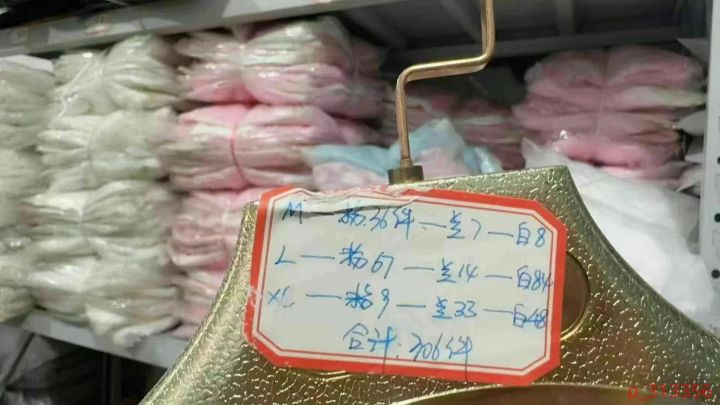 M — 粉.36件 — 兰7 — 白8
L — 粉67 — 兰14 — 白84
XL — 粉9 — 兰33 — 白48
合计:306件